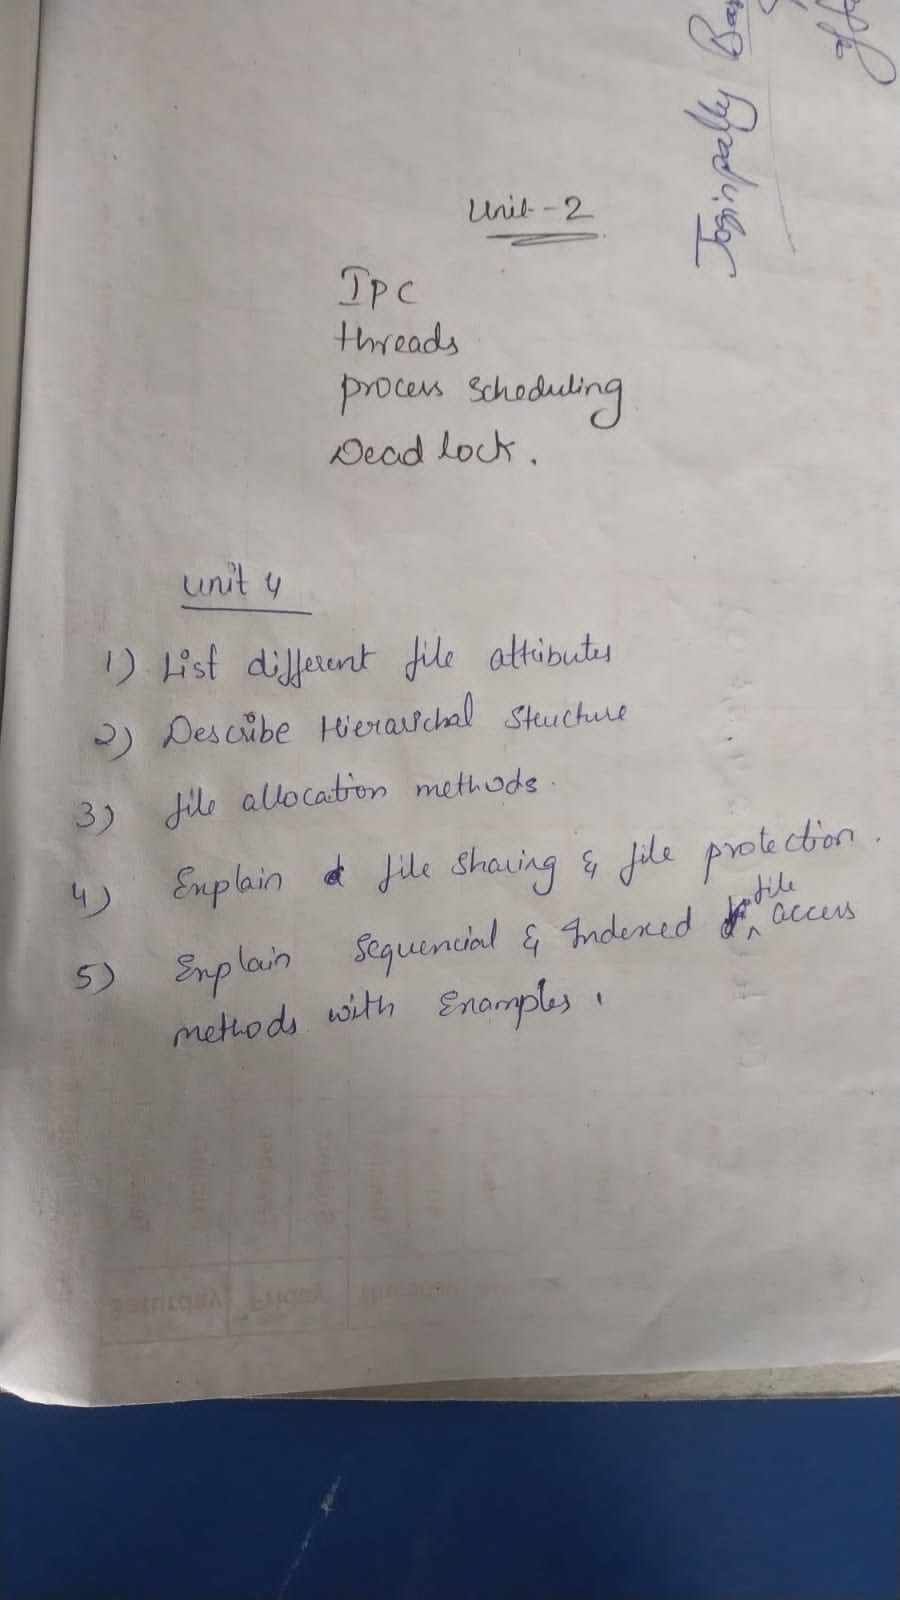 Unit-2
IPC
threads
process scheduling
Dead lock.
unit 4
1) List different file attributes
2) Describe Hierarichal Structure
3) file allocation methods.
4) Explain file sharing & file protection.
5) Explain Sequencial & Indexed file access
methods with Examples.
Saturday Friday Thursday